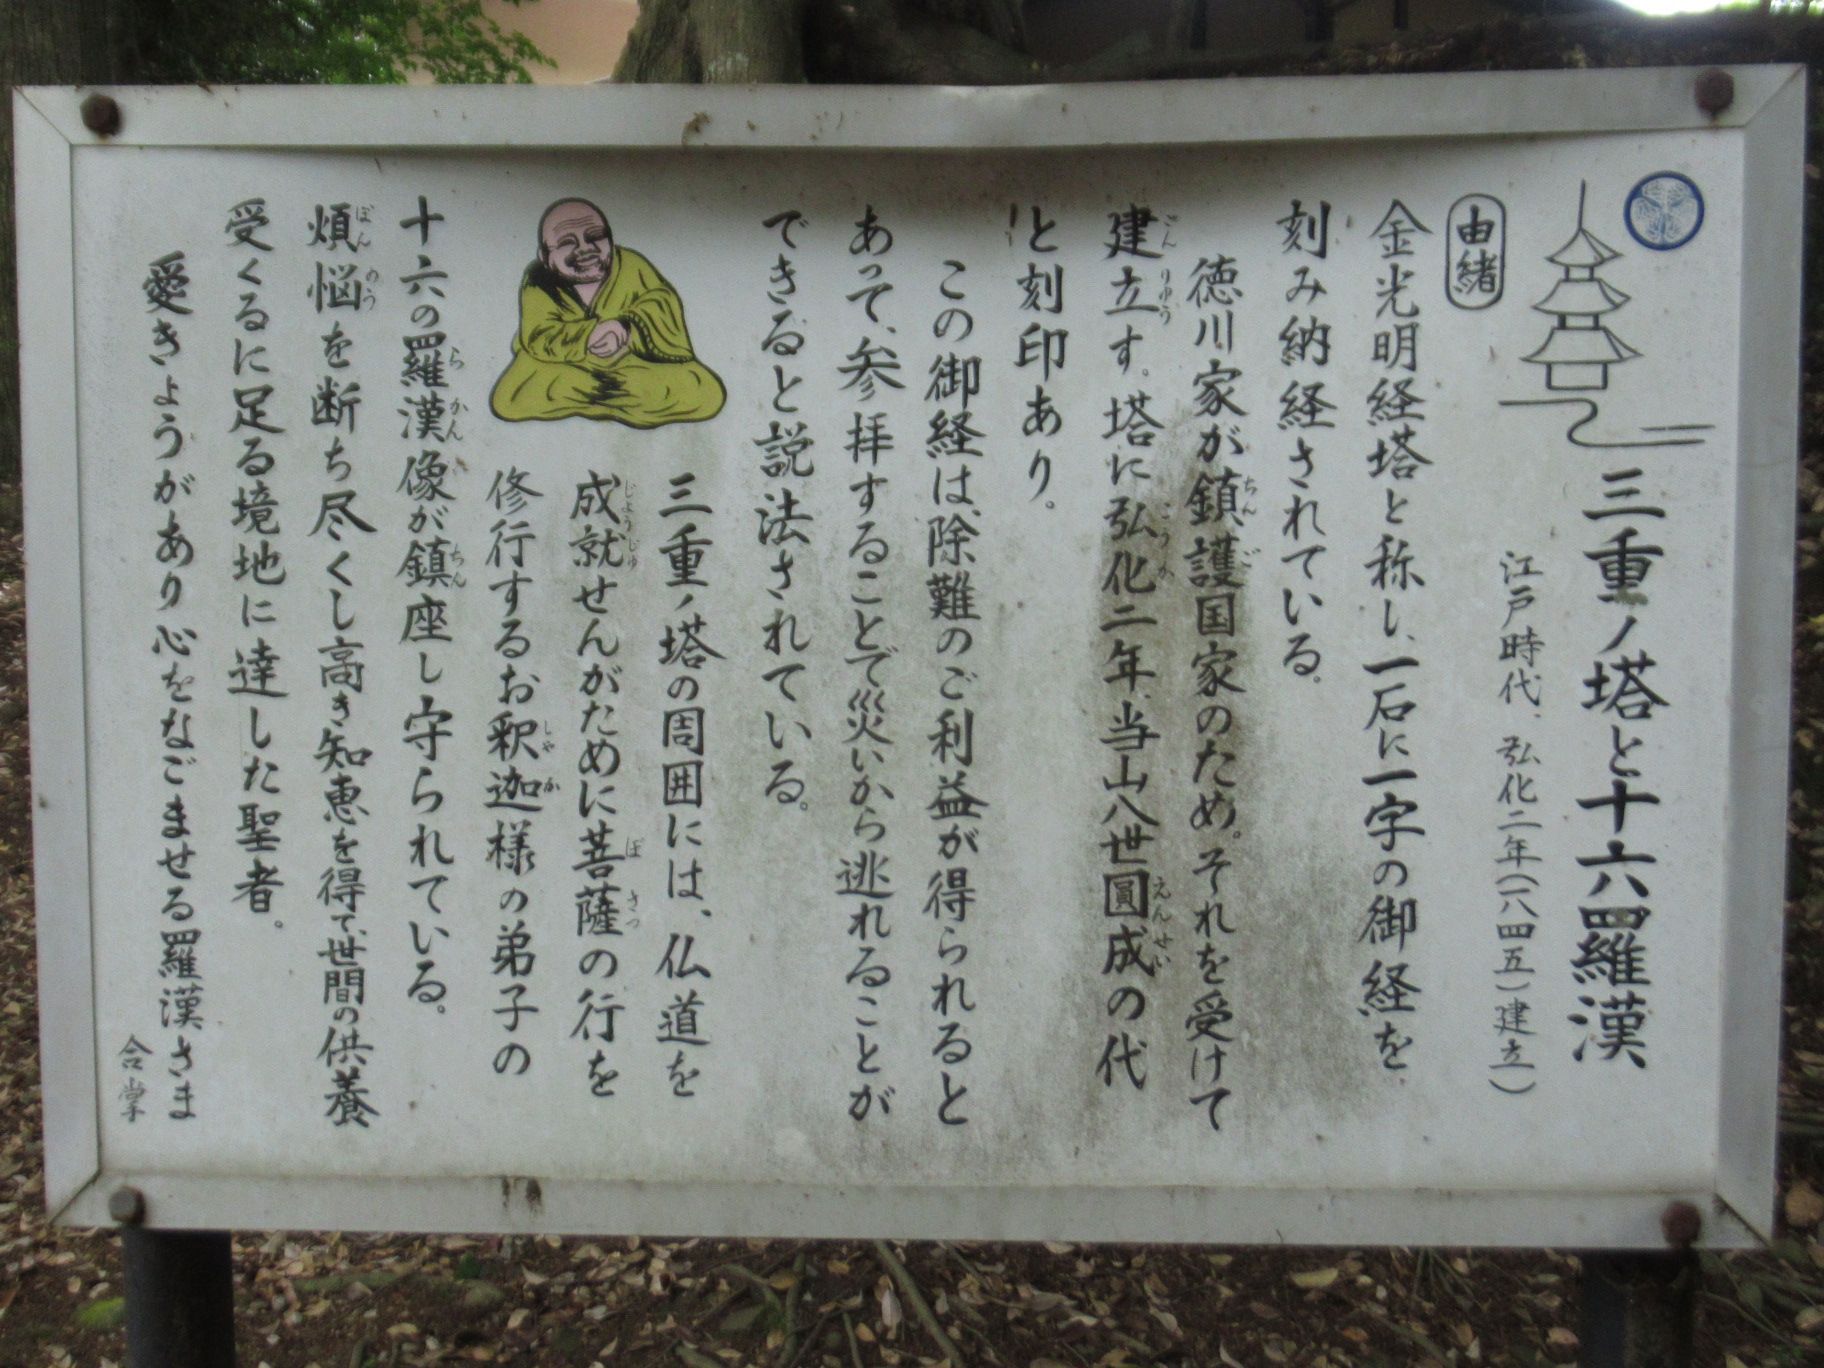 三重ノ塔と十六羅漢
江戸時代、弘化二年(一八四五)建立)
由緒
金光明経塔と称し、一石に一字の御経を
刻み納経されている。
徳川家が鎮護国家のため。それを受けて
建立す。塔に弘化二年、当山八世圓成の代
と刻印あり。
この御経は、除難のご利益が得られると
あって、参拝することで災いから逃れることが
できると説法されている。
三重ノ塔の周囲には、仏道を
成就せんがために菩薩の行を
修行するお釈迦様の弟子の
十六の羅漢像が鎮座し守られている。
煩悩を断ち尽くし高き知恵を得て、世間の供養
受くるに足る境地に達した聖者。
愛きょうがあり心をなごませる羅漢さま
合掌